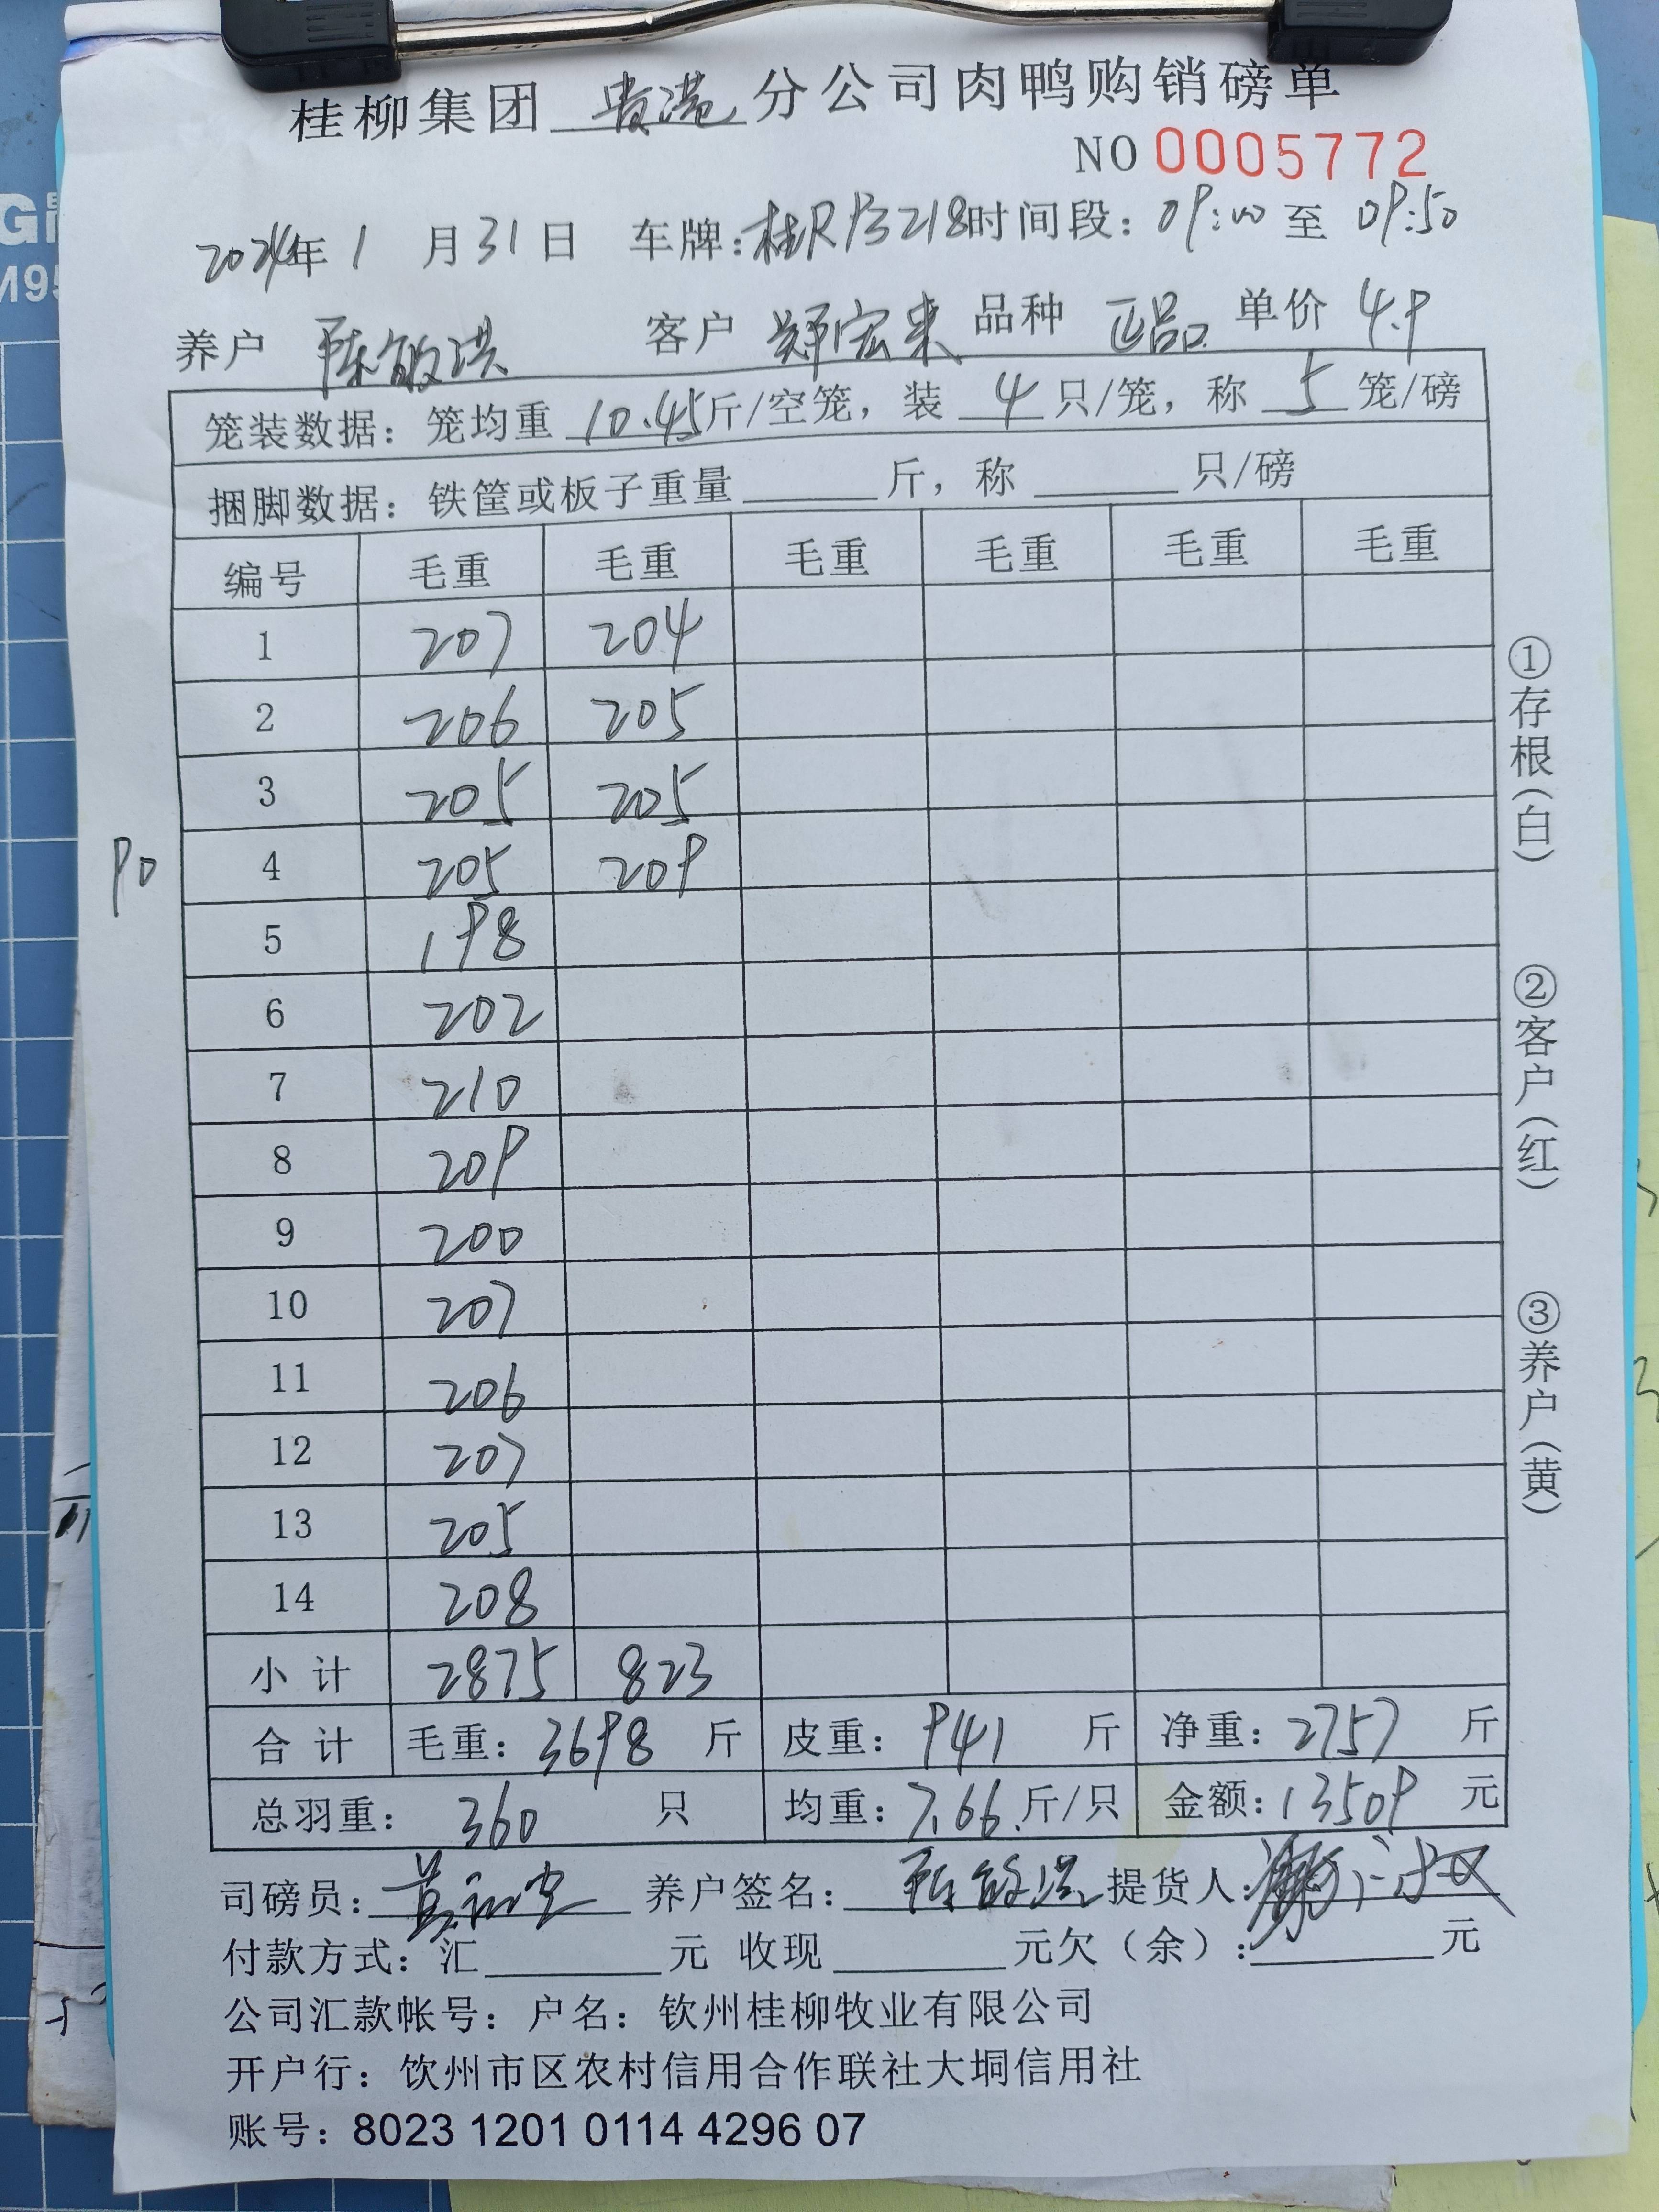 桂柳集团 贵港 分公司肉鸭购销磅单
NO 0005772
2024年 1 月 31 日 车牌：桂R 218 时间段：09:00 至 09:50
养户 陈敏洪 客户 郑宏来 品种 正品 单价 4.9
笼装数据：笼均重 10.45 斤/空笼，装 4 只/笼，称 5 笼/磅
捆脚数据：铁筐或板子重量 斤，称 只/磅
编号 毛重 毛重 毛重 毛重 毛重 毛重
1 207 204
2 206 205
3 205 205
90
4 205 209
5 198
6 202
7 210
8 209
9 200
10 207
11 206
12 207
13 205
14 208
小计 2875 823
合计 毛重：3698 斤 皮重：941 斤 净重：2757 斤
总羽重：360 只 均重：7.66 斤/只 金额：13509 元
①存根（白）
②客户（红）
③养户（黄）
司磅员： 养户签名：陈敏洪 提货人：
付款方式：汇 元 收现 元欠（余）： 元
公司汇款帐号：户名：钦州桂柳牧业有限公司
开户行：饮州市区农村信用合作联社大垌信用社
账号：8023 1201 0114 4296 07